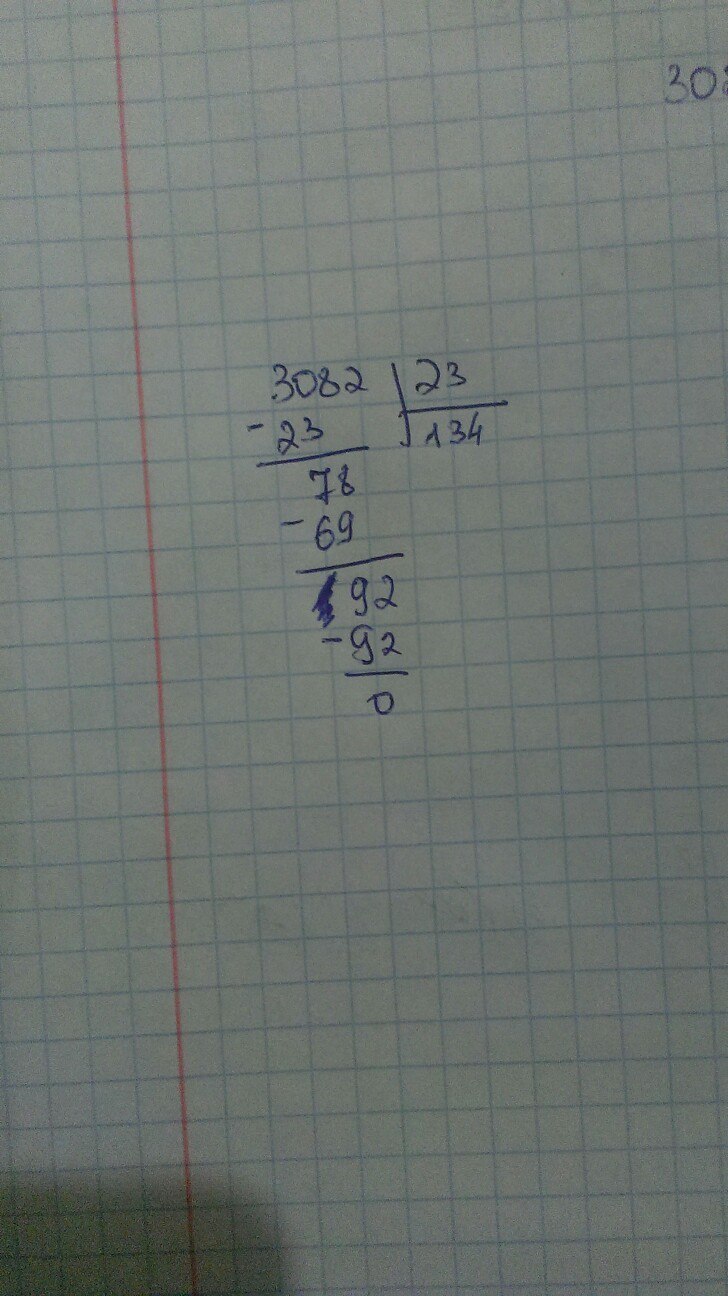 308
3082 23
-23 134
78
-69
92
-92
0